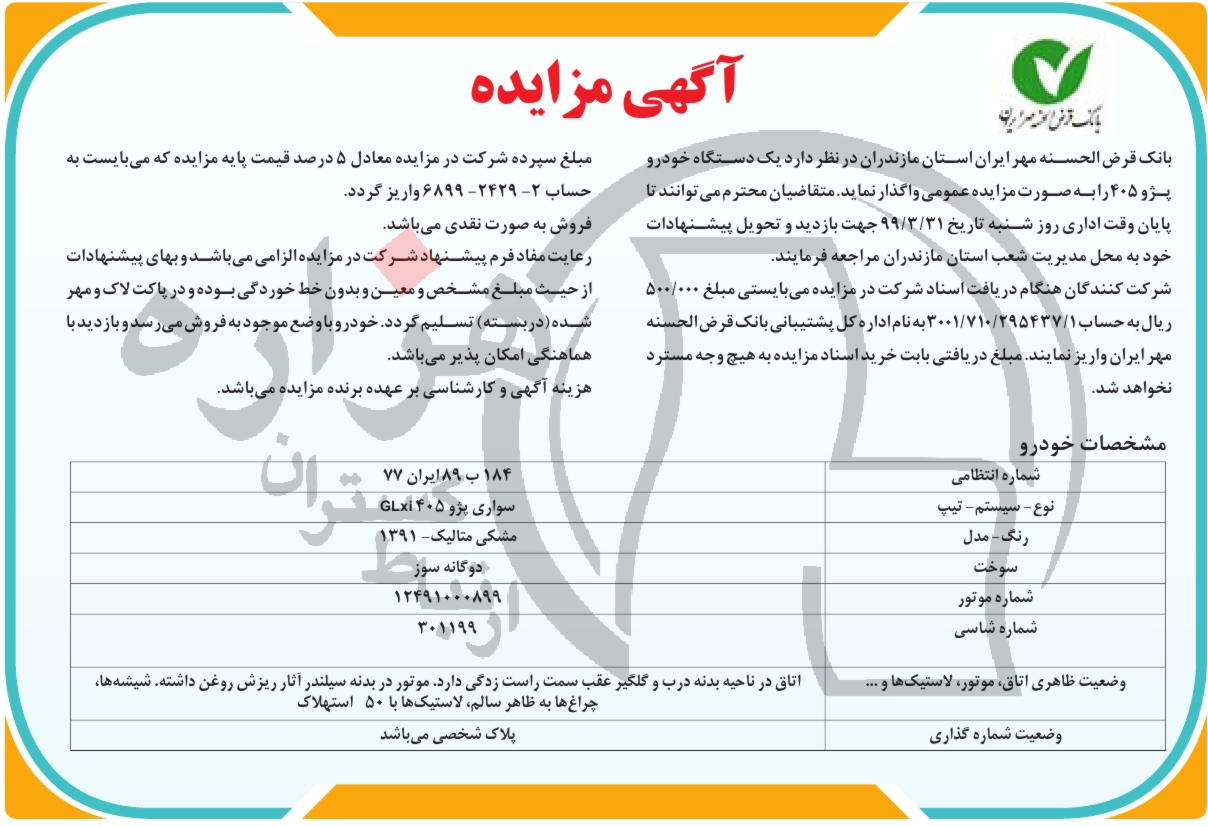 آگهی مزایده
بانک قرض الحسنه مهر ایران
بانک قرض الحسنه مهر ایران استان مازندران در نظر دارد یک دستگاه خودرو
پژو ۴۰۵ را به صورت مزایده عمومی واگذار نماید. متقاضیان محترم می توانند تا
پایان وقت اداری روز شنبه تاریخ ۹۹/۳/۳۱ جهت بازدید و تحویل پیشنهادات
خود به محل مدیریت شعب استان مازندران مراجعه فرمایند.
شرکت کنندگان هنگام دریافت اسناد شرکت در مزایده می‌بایستی مبلغ ۵۰۰/۰۰۰
ریال به حساب ۳۰۰۱/۷۱۰/۲۹۵۴۳۷/۱ به نام اداره کل پشتیبانی بانک قرض الحسنه
مهر ایران واریز نمایند. مبلغ دریافتی بابت خرید اسناد مزایده به هیچ وجه مسترد
نخواهد شد.
مبلغ سپرده شرکت در مزایده معادل ۵ درصد قیمت پایه مزایده که می‌بایست به
حساب ۲- ۲۴۲۹- ۶۸۹۹ واریز گردد.
فروش به صورت نقدی می‌باشد.
رعایت مفاد فرم پیشنهاد شرکت در مزایده الزامی می‌باشد و بهای پیشنهادات
از حیث مبلغ مشخص و معین و بدون خط خوردگی بوده و در پاکت لاک و مهر
شده (در بسته) تسلیم گردد. خودرو با وضع موجود به فروش می رسد و بازدید با
هماهنگی امکان پذیر می‌باشد.
هزینه آگهی و کارشناسی بر عهده برنده مزایده می‌باشد.
مشخصات خودرو
شماره انتظامی ۱۸۴ ب ۸۹ ایران ۷۷
نوع - سیستم - تیپ سواری پژو ۴۰۵ GLxi
رنگ - مدل مشکی متالیک - ۱۳۹۱
سوخت دوگانه سوز
شماره موتور ۱۲۴۹۱۰۰۰۸۹۹
شماره شاسی ۳۰۱۱۹۹
وضعیت ظاهری اتاق، موتور، لاستیک‌ها و ... اتاق در ناحیه بدنه درب و گلگیر عقب سمت راست زدگی دارد. موتور در بدنه سیلندر آثار ریزش روغن داشته. شیشه‌ها،
چراغ‌ها به ظاهر سالم، لاستیک‌ها با ۵۰ استهلاک
وضعیت شماره گذاری پلاک شخصی می‌باشد
هزاره
گستران
ارتباط